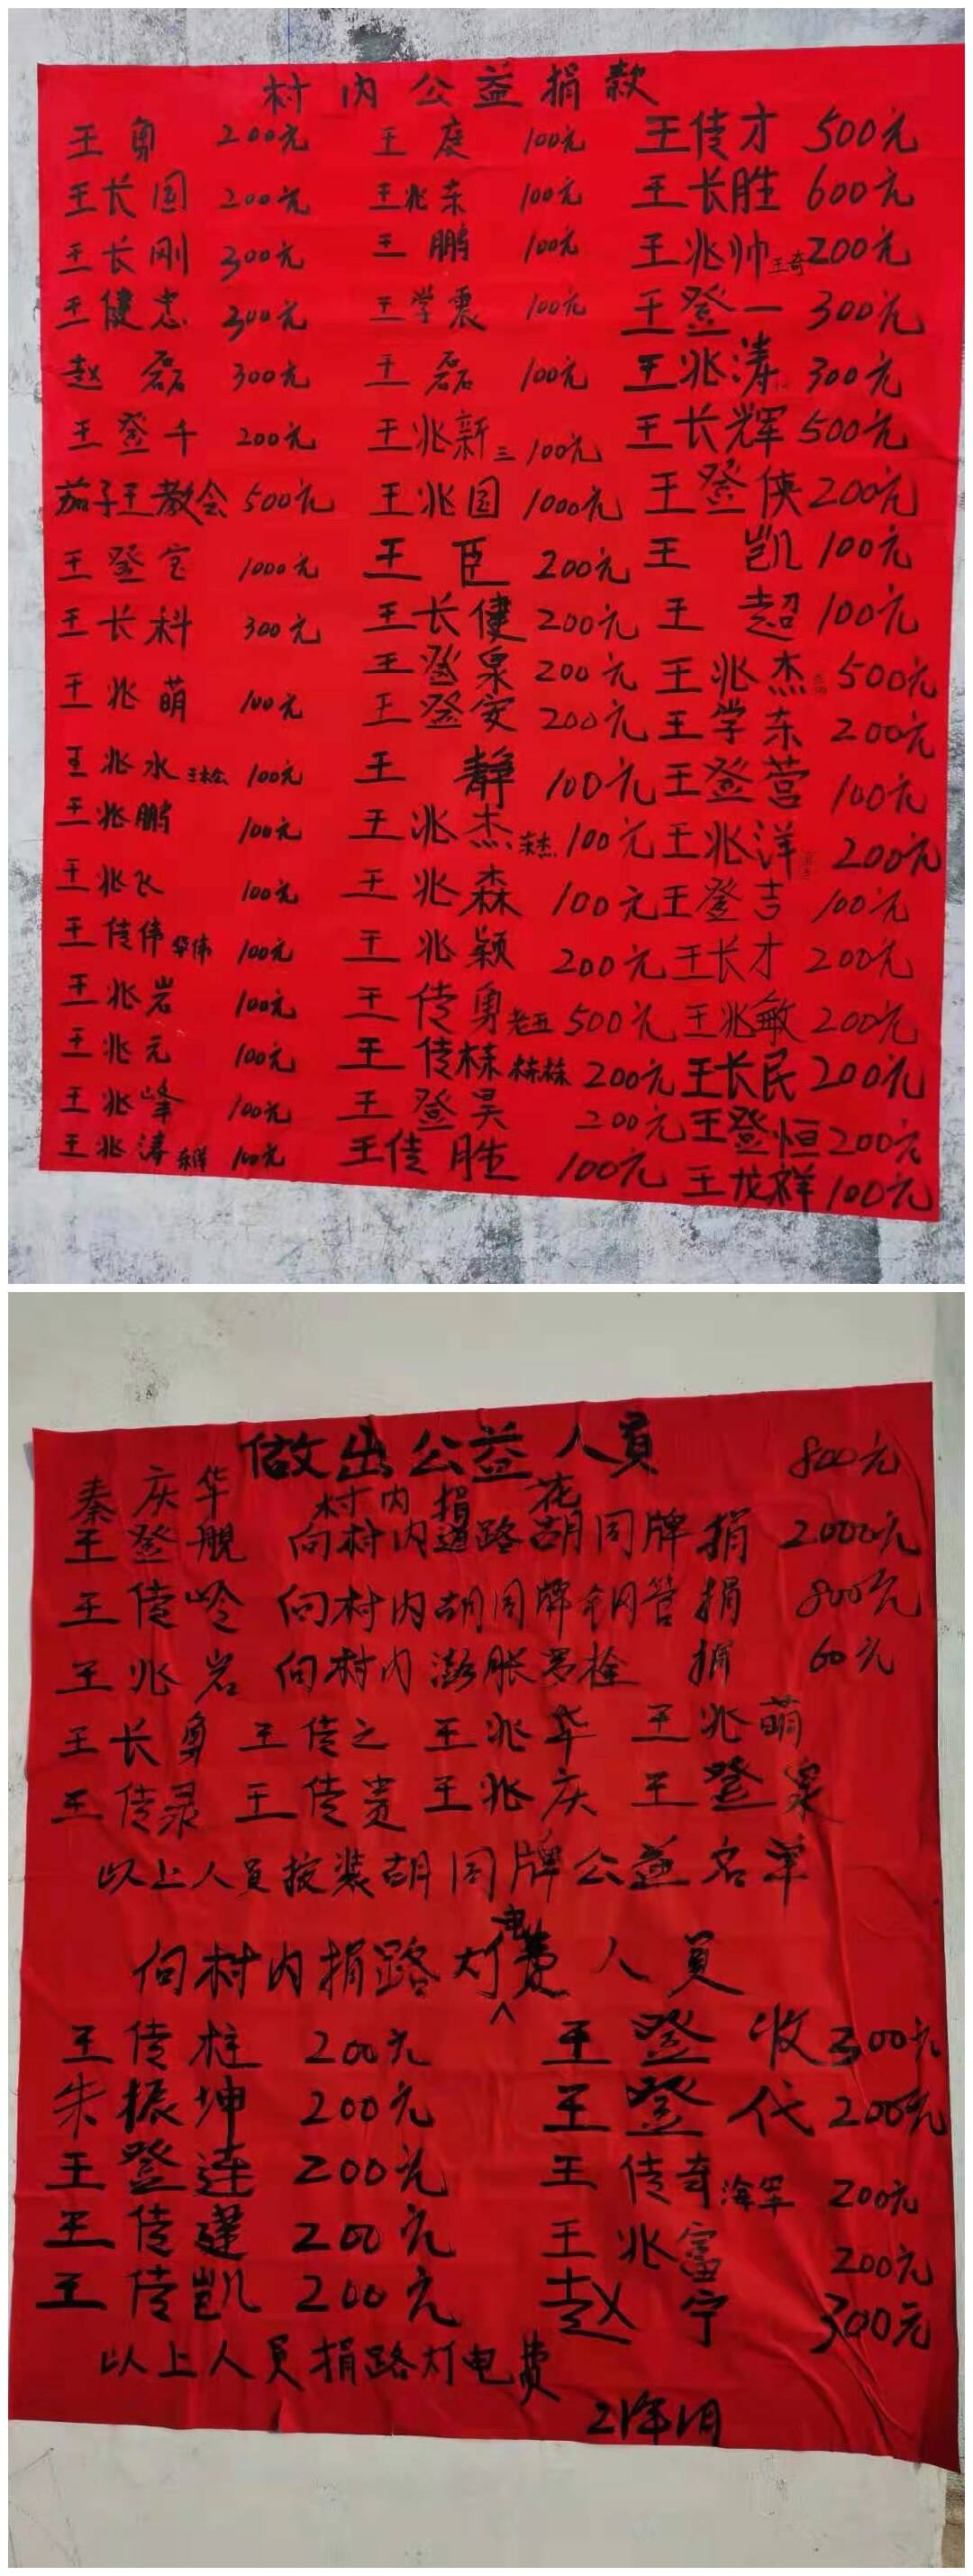 村内公益捐款
王勇 200元 王庭 100元 王传才 500元
王长国 200元 王兆东 100元 王长胜 600元
王长刚 300元 王鹏 100元 王兆帅 王奇 200元
王健忠 300元 王学震 100元 王登一 300元
赵磊 300元 王磊 100元 王兆涛 300元
王登千 200元 王兆新 三 100元 王长辉 500元
茄子王教会 500元 王兆国 1000元 王登侠 200元
王登宝 1000元 王臣 200元 王凯 100元
王长科 300元 王长健 200元 王超 100元
王兆萌 100元 王登泉 200元 王兆杰 500元
王登安 200元 王学东 200元
王兆水 100元 王静 100元 王登营 100元
王兆鹏 100元 王兆杰 东杰 100元 王兆洋 200元
王兆飞 100元 王兆森 100元 王登吉 100元
王传伟 华伟 100元 王兆颖 200元 王长才 200元
王兆岩 100元 王传勇 老五 500元 王兆敏 200元
王兆元 100元 王传栋 栋栋 200元 王长民 200元
王兆峰 100元 王登昊 200元 王登恒 200元
王兆涛 东洋 100元 王传胜 100元 王龙祥 100元
做出公益人员
秦庆华 村内捐花 800元
王登舰 向村内道路胡同牌捐 2000元
王传岭 向村内胡同牌钢管捐 800元
王兆岩 向村内澎胀罗栓 捐 60元
王长勇 王传之 王兆华 王兆萌
王传录 王传贵 王兆庆 王登泉
以上人员按装胡同牌公益名单
向村内捐路灯电费人员
王传柱 200元 王登收 300元
朱振坤 200元 王登代 200元
王登连 200元 王传奇 海军 200元
王传建 200元 王兆富 200元
王传凯 200元 赵宁 300元
以上人员捐路灯电费
21年1月